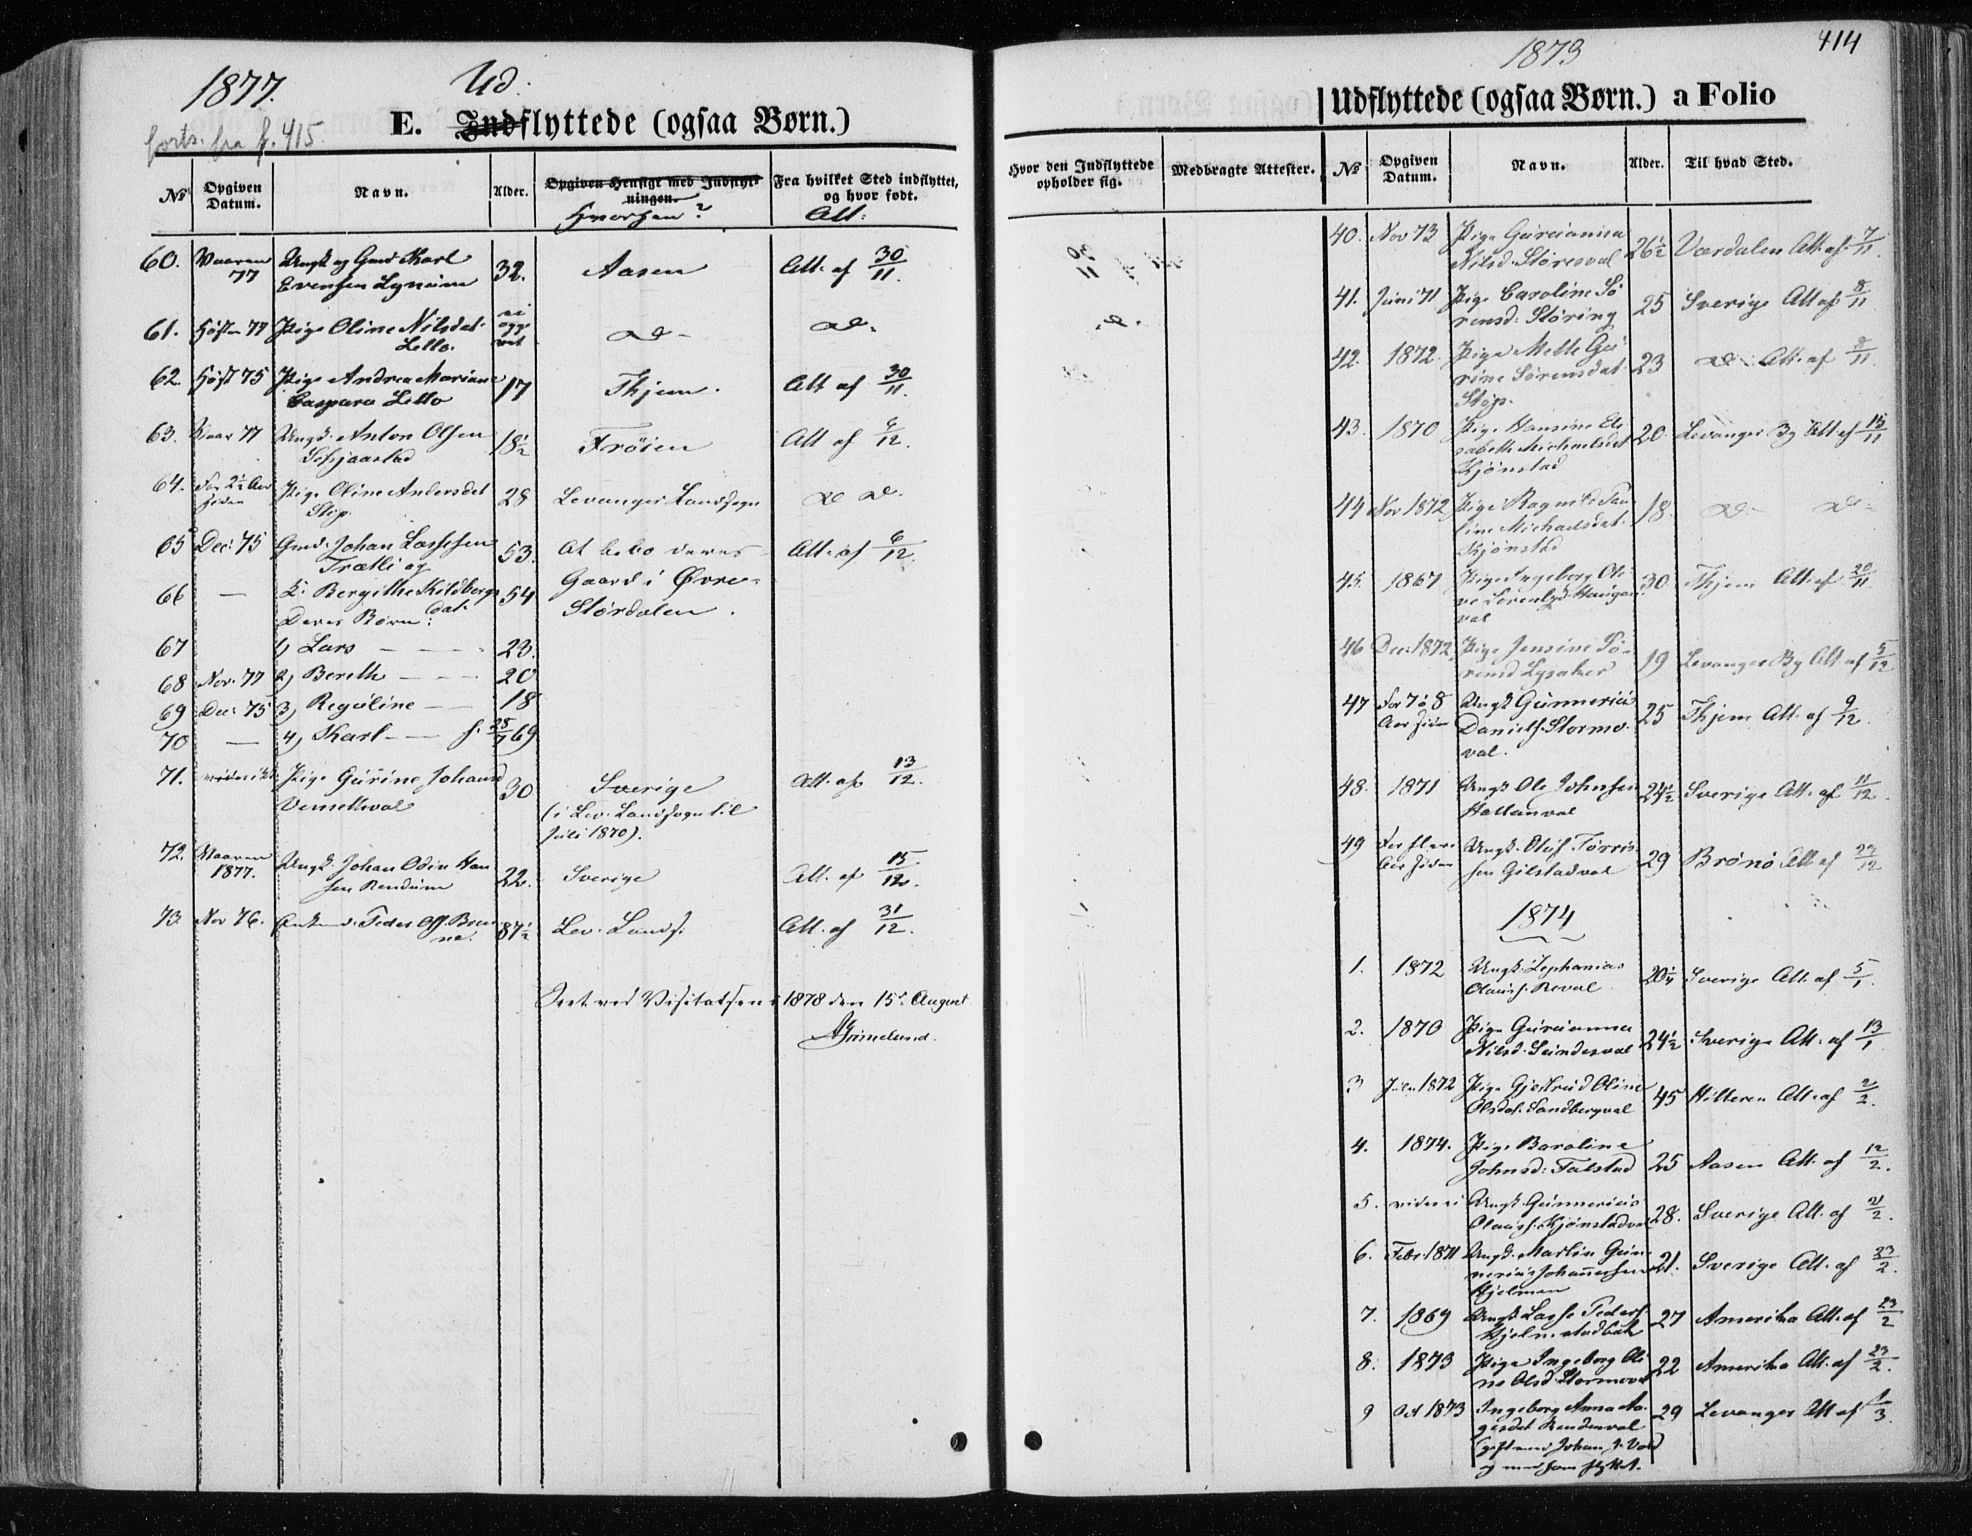 1877.
Ud.
forts. fra f. 415.
E. Indflyttede (ogsaa Børn.)
No
Opgiven Datum.
Navn.
Alder.
Opgiven Hensigt med Indflytningen.
Hvorhen?
Fra hvilket Sted indflyttet, og hvor født.
Att:
60. Vaaren Ungk og Gmd Karl
77 Evensen Lynum 32. Aasen Att. af 30/11.
61. Høsten 77 Pige Oline Nilsdat. Lello. do do.
62. Høst 75 Pige Andrea Mariane
Caspara Lello 17 Thjem. Att af 30/11.
63. Vaar 77 Ungk. Anton Olsen
18½ Frøien Att af 6/12.
64. For 2½ Aar siden Pige Oline Andersdat
Støp. 28 Levanger Landsogn do do.
65 Dec: 75 Gmd. Johan Lassesen
Trætli og 53. At bebo deres Att. af 6/12
66 — K. Bergithe Kildborgs dat. 54 Gaard i Øvre
Deres Børn: Størdalen.
67 1) Lars — — 23.
68 Nov. 77 2) Bereth — — 20
69 Dec: 75 3) Reguline — — 18
70 — 4) Karl — — f. 25/7 69
71. vides ikke Pige Gurine Johansd 30 Sverige Att. af 13/12.
(i Lev. Landsogn til
Juli 1870).
72. Vaaren 1877. Ungk. Johan Odin Han
sen Rendum 22. Sverige Att. af 15/12.
73. Nov 76. Enkemd. Peder Ols. Bren
ne. 87½ Lev. Lands. Att. af 31/12.
Seet ved Visitatsen 1878 den 15de August
AGrimelund.
414
1873
Udflyttede (ogsaa Børn.) a Folio
Hvor den Indflyttede opholder sig.
Medbragte Attester.
No
Opgiven Datum.
Navn.
Alder.
Til hvad Sted.
40. Nov 73 Pige Gurianna
Nilsd. Støresval 26½ Værdalen Att. af 7/11.
41. Juni 71 Pige Caroline Sø
rensd. Støring 25 Sverige Att af 8/11
42. 1872 Pige Mette Gu
rine Sørensdat. 23 do Att. af 8/11
Støp.
43. 1870 Pige Hansine Eli
sabeth Michaelsdat 20 Levanger By Att. af 15/11
Kjønstad
44 Nov 1872 Pige Ragnild Pau
line Michaelsdat. 18. do do
Kjønstad
45. 1867 Pige Ingeborg Oli
30 Thjem Att. af 20/11
val
46 Dec. 1872 Pige Jensine Sø
rensd Lysaker 19 Levanger By Att. af 5/12
47 For 7 à 8 Aar siden Ungk Gunnerius
Daniels. Stormo 25 Thjem Att. af 9/12.
val.
48. 1871 Ungk Ole Johnsen
24½ Sverige Att. af 11/12.
49 For flere Aar siden Ungk. Oluf Torris
sen Gilstadval 29 Brønø Att af 23/12
1874
1. 1872 Ungk. Zephanias
Olaus. Reval 20¼ Sverige Att. af 5/1.
2. 1870 Pige Gurianna
Nilsd. Sundesval 24½ Sverige Att. af 13/1
3 1872 Pige Gjertrud Oline
Olsdat. Sandbergval 45 Hitteren Att. af 2/2.
4. 1874. Pige Baroline
Johnsd: Falstad 25 Aasen Att. af 12/2.
5. vides ei Ungk. Gunnerius
Olaus. Kjønstadval 28. Sverige Att. af 21/2.
6. Febr 1871 Ungk. Martin Gun
nerius Johannesen 21. Sverige Att. af 23/2.
Hjelman
7. 1869 Ungk Lasse Peders.
27 Amerika Att. af 23/2
8. 1873 Pige Ingeborg Oli
ne Olsd. Stormoval 22 Amerika Att. af 23/2.
9 Oct 1873 Ingeborg Anna Aa
gesdat Rendemval 29 Levanger Att af
(gift med Johan J. Val)